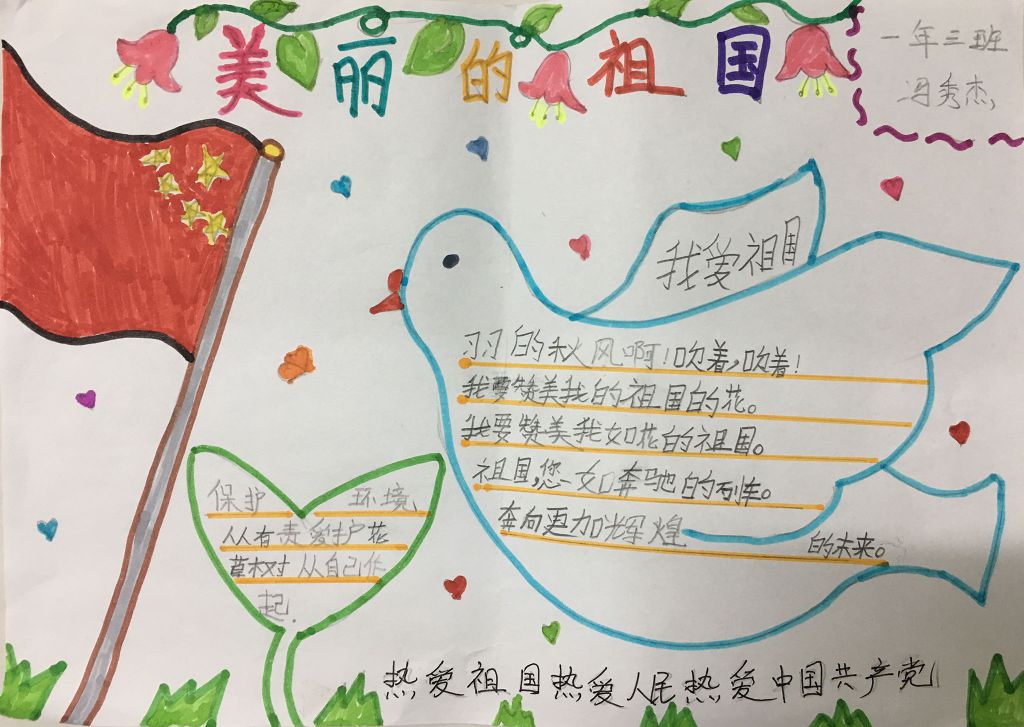 美丽的祖国
一年三班
冯秀杰
我爱祖国
习习的秋风啊！吹着，吹着！
我要赞美我的祖国的花。
我要赞美我如花的祖国。
祖国，您一如奔驰的列车。
奔向更加辉煌
的未来。
保护 环境
从有责爱护花
草树从自己作
起.
热爱祖国热爱人民热爱中国共产党